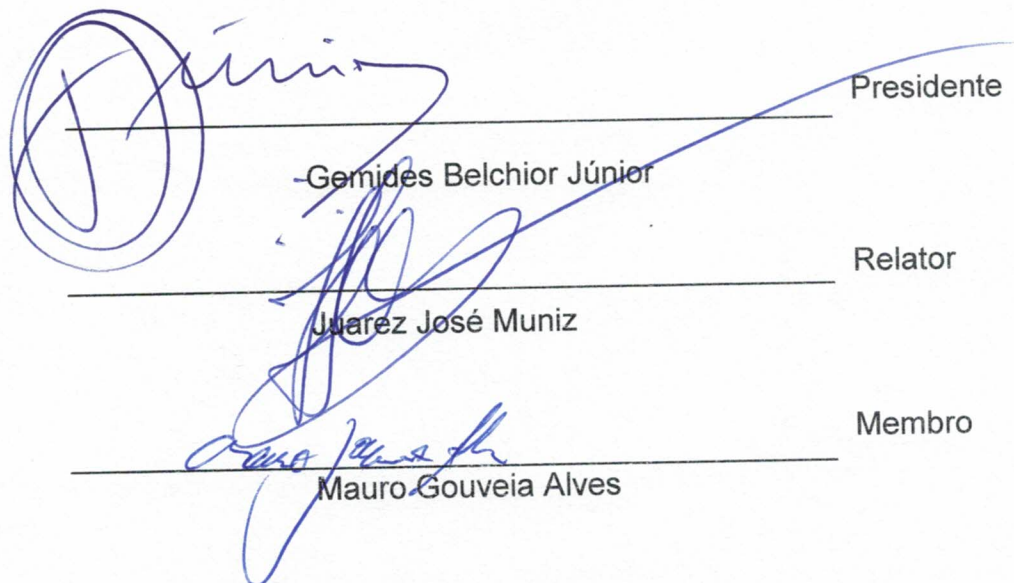 Júnior
Presidente
Gemides Belchior Júnior
Relator
Juarez José Muniz
Membro
Mauro Gouveia Alves